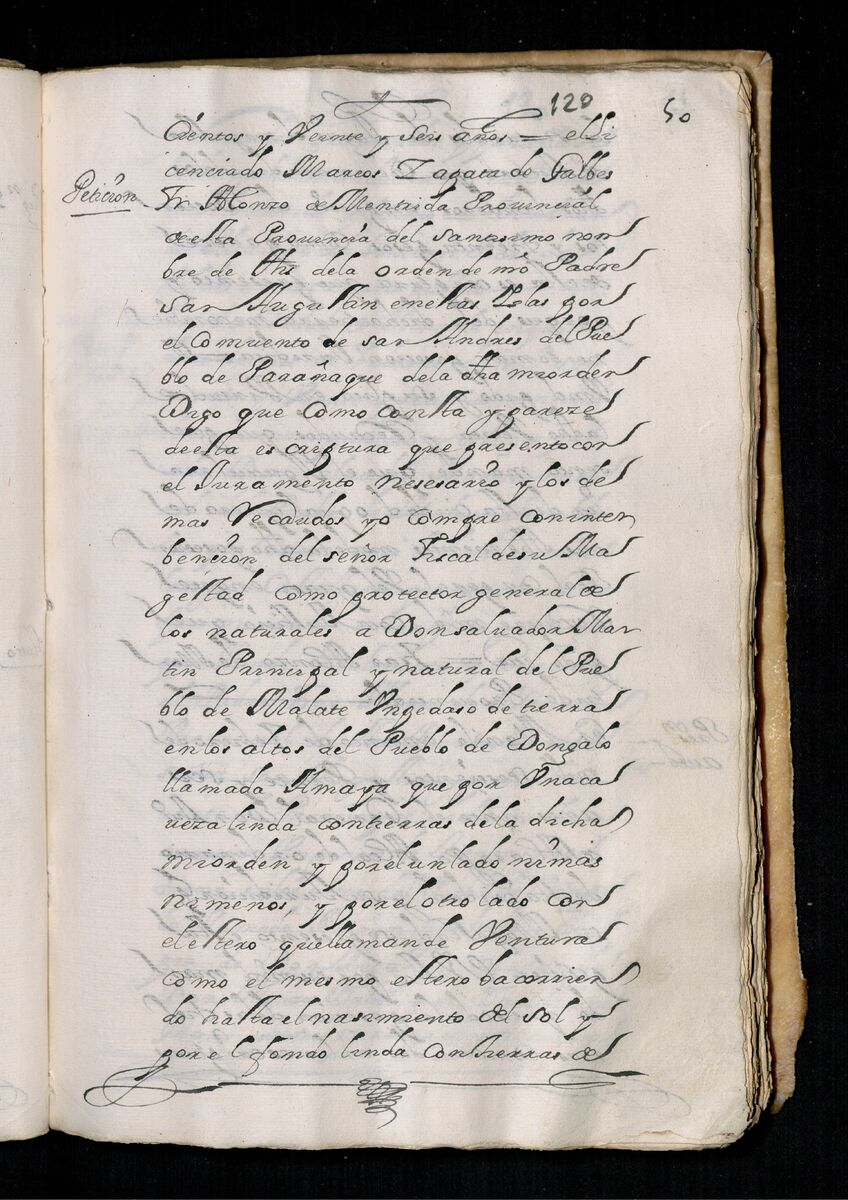 120
50
Cientos y Veinte y seis años = el Li
cenciado Marcos Zapata de Galbes
Peticion
Fr Alonzo de Mentrida Provincial
de esta Provincia del santisimo nom
bre de Jhs dela orden de nro Padre
san Augustin en estas Yslas por
el comvento de san Andres del Pue
blo de Parañaque dela dha mi orden
Digo que como consta y pareze
de esta escriptura que presento con
el Juramento nesesario y los de
mas Recaudos yo compre con inter
bencion del señor Fiscal de su Ma
gestad como protector general de
los naturales a Don salvador Mar
tin Principal y natural del Pue
blo de Malate Vn pedaso de tierra
en los altos del Pueblo de Dongalo
llamada Amaya que por Vna ca
veza linda con tierras de la dicha
mi orden y por el un lado ni mas
ni menos, y por el otro lado con
el estero que llaman de Ventura
como el mesmo estero ba corrien
do hasta el nasimiento del sol y
por el fondo linda con tierras de